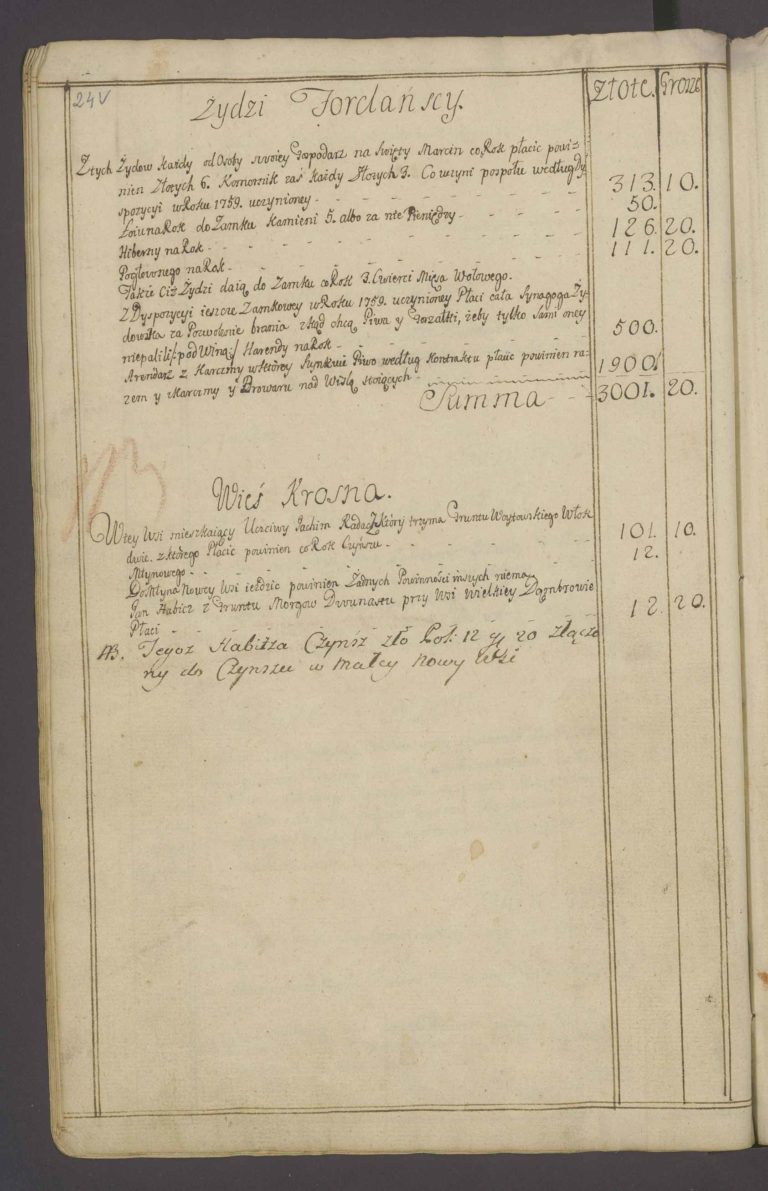 24v
Żydzi Fordańscy. Złote. Grosze
Z tych Żydow każdy od Osoby swoiey Gospodarz na Swięty Marcin co Rok płacic powi-
nien Złotych 6. Komornik zaś każdy Złotych 3. Co uczyni pospołu według Dy-
spozycyi w Roku 1759. uczynioney - 313. 10.
Łoiu na Rok do Zamku Kamieni 5. albo za nie Pieniędzy - 50.
Hiberny na Rok - 126. 20.
Pogłownego na Rok - 111. 20.
Także Ciż Żydzi daią do Zamku co Rok 3. Cwierci Mięsa Wołowego.
Z Dyspozycyi ieszcze Zamkowey w Roku 1759. uczynioney Płaci cała Synagoga Ży-
dowska za Pozwolenie brania zkąd chcą Piwa y Gorzałki, żeby tylko Sami oney
niepalili /: pod Winą :/ Harendy na Rok - 500.
Arendarz z Karczmy w ktorey Szynkuie Piwo według Kontraktu płacic powinien ra-
zem y zKarczmy y Browaru nad Wisłą stoiących - 1900.
Summa - 3001. 20.
Wieś Krosna.
W tey Wsi mieszkaiący Uczciwy Jachim Radacz, Który trzyma Gruntu Woytowskiego Włok
dwie. z ktorego Płacic powinien co Rok Czynszu - 101. 10.
Młynowego - 12.
Do Młyna Nowey Wsi ieździc powinien Żadnych Powinności inszych niema.
Jan Habicz z Gruntu Morgow Dwunastu przy Wsi Wielkiey Dąmbrowie
Płaci - 12. 20.
NB. Tegoż Habitza Czynsz zło Pol: 12 gr 20 złączo
ny do Czynszu w małey nowy Wsi